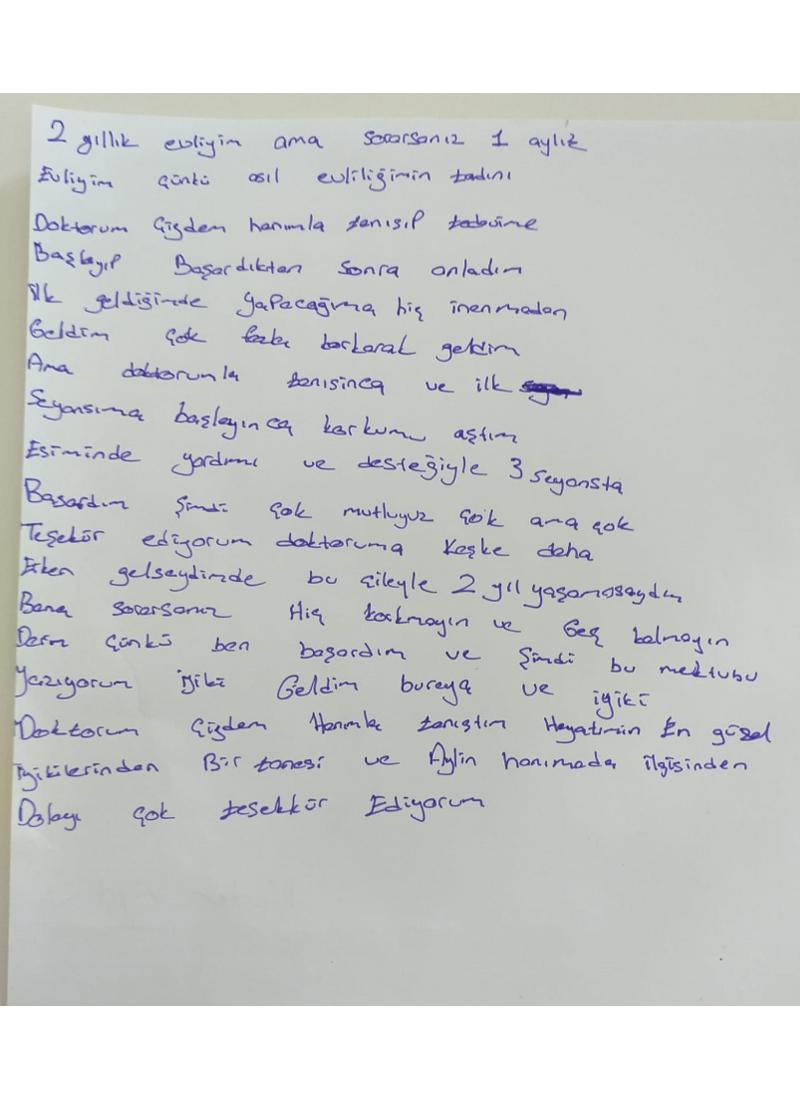 2 yıllık evliyim ama sorarsanız 1 aylık
Evliyim çünkü asıl evliliğimin tadını
Doktorum Çiğdem hanımla tanışıp tedavime
Başlayıp Başardıktan sonra anladım
ilk geldiğimde yapacağıma hiç inanmadan
Geldim çok fazla korkarak geldim
Ama doktorumla tanışınca ve ilk
Seyansıma başlayınca korkumu aştım
Eşiminde yardımı ve desteğiyle 3 seyansta
Başardım Şimdi çok mutluyuz çok ama çok
Teşekür ediyorum doktoruma Keşke daha
Erken gelseydimde bu çileyle 2 yıl yaşamasaydım
Bana sorarsanız Hiç korkmayın ve Geç kalmayın
Derim Çünkü ben başardım ve Şimdi bu mektubu
Yazıyorum iyiki Geldim buraya ve iyiki
Doktorum Çiğdem Hanımla tanıştım Hayatımın En güzel
iyikilerinden Bir tanesi ve Aylin hanımada ilgisinden
Dolayı çok teşekkür Ediyorum